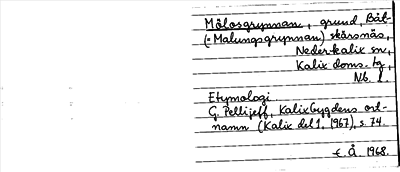 Målosgrynnan, grund, Båt-
(=Malungsgrynnan) skärsnäs,
Nederkalix sn,
Kalix doms. tg,
Nb. l.
Etymologi
G. Pellijeff, Kalixbygdens ort-
namn (Kalix del 1, 1967), s. 74.
E. Å. 1968.